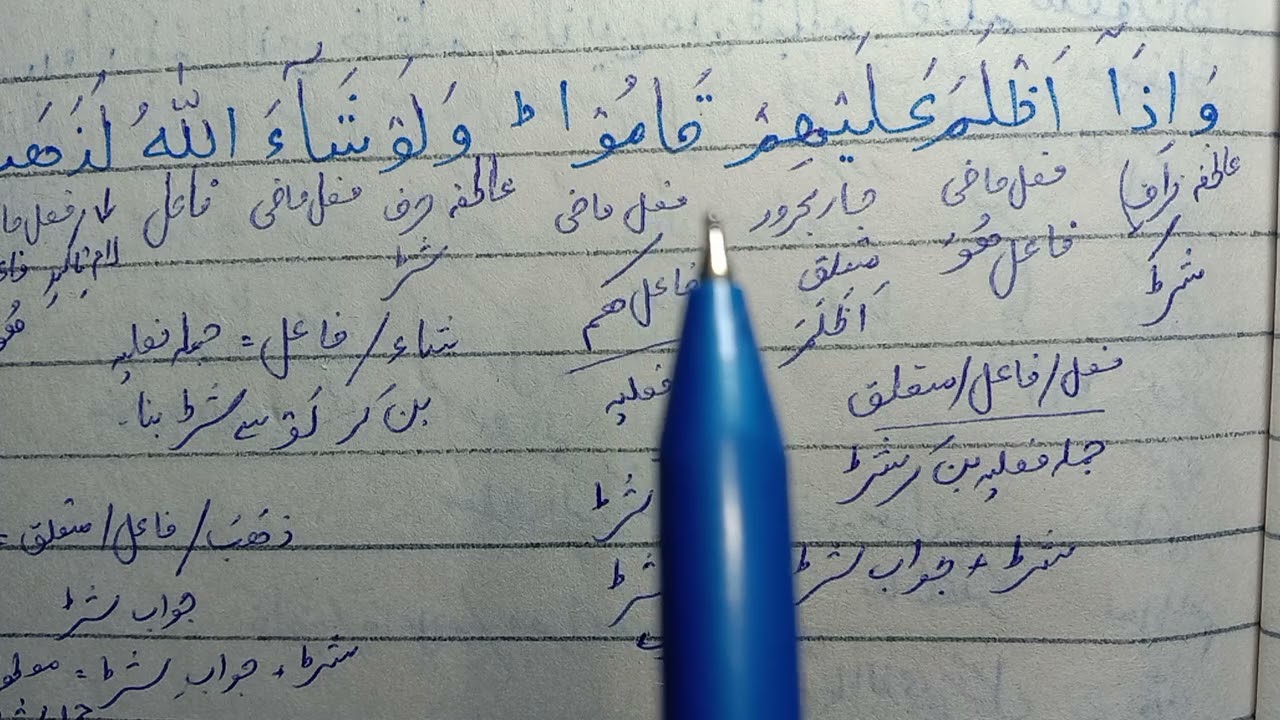 وَاِذَآ اَظْلَمَ عَلَيْهِمْ قَامُوْا ط وَلَوْ شَآءَ اللّٰهُ لَذَهَ
عاطفہ حرف فعل ماضی جار مجرور فعل ماضی عاطفہ حرف فعل ماضی فاعل فعل ما
شرط فاعل ھُوَ متعلق فاعل ھم شرط لام تاکید فا
اَظْلَمَ
شاء / فاعل = جملہ فعلیہ
فعل / فاعل / متعلق فعلیہ بن کر لَوْ سے شرط بنا۔
جملہ فعلیہ بن کر شرط
شرط ذَهَبَ / فاعل / متعلق =
شرط + جواب شرط شرط جواب شرط
شرط + جواب شرط =